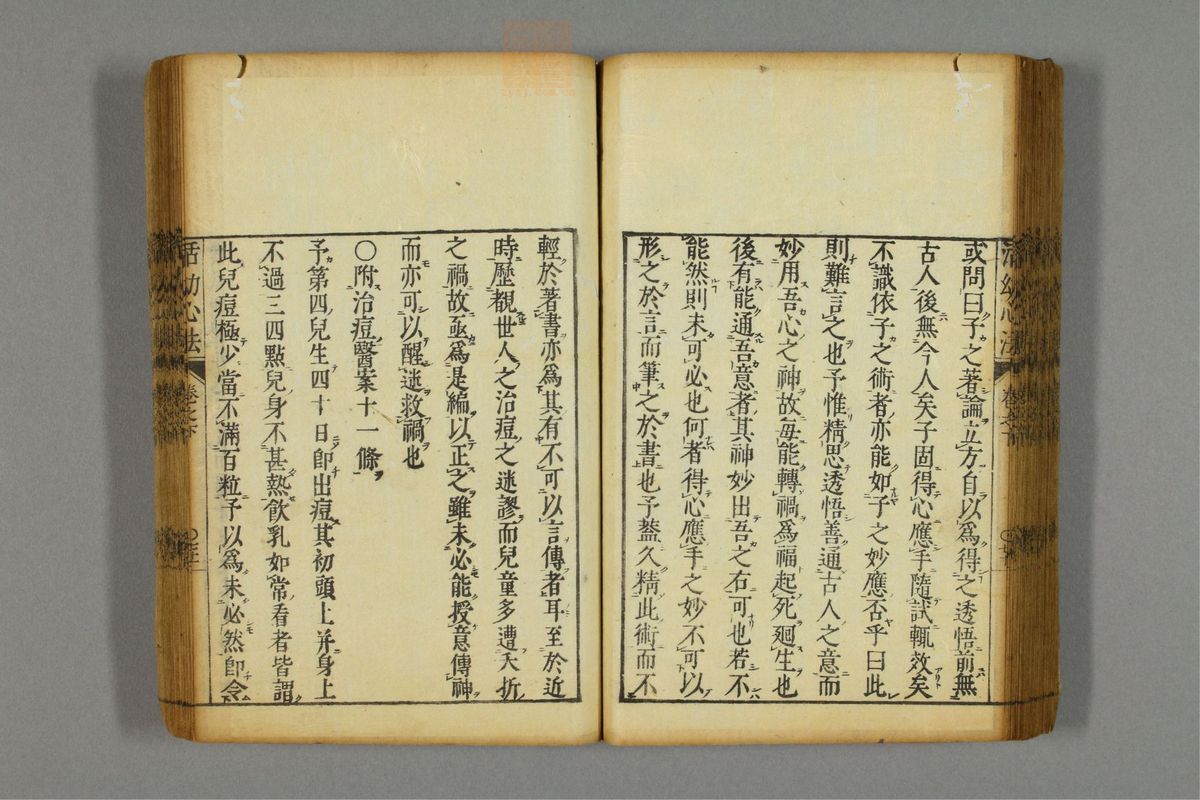 活幼心法
或問曰子之著論立方自以爲得之透悟前無
古人後無今人矣子固得心應手隨試輒效矣
不識依子之術者亦能如子之妙應否乎曰此
則難言之也予惟精思透悟善通古人之意而
妙用吾心之神故每能轉禍爲福起死廻生也
後有能通吾意者其神妙出吾之右可也若不
能然則未可必也何者得心應手之妙不可以
形之於言而筆之於書也予蓋久精此術而不
輕於著書亦爲其有不可以言傳者耳至於近
時歷覩世人之治痘之迷謬而兒童多遭夭折
之禍故亟爲是編以正之雖未必能授意傳神
而亦可以醒迷救禍也
〇附治痘醫案十一條
予第四兒生四十日卽出痘其初頭上并身上
不過三四點兒身不甚熱飲乳如常看者皆謂
此兒痘極少當不滿百粒予以爲未必然卽令
活幼心法 卷之下